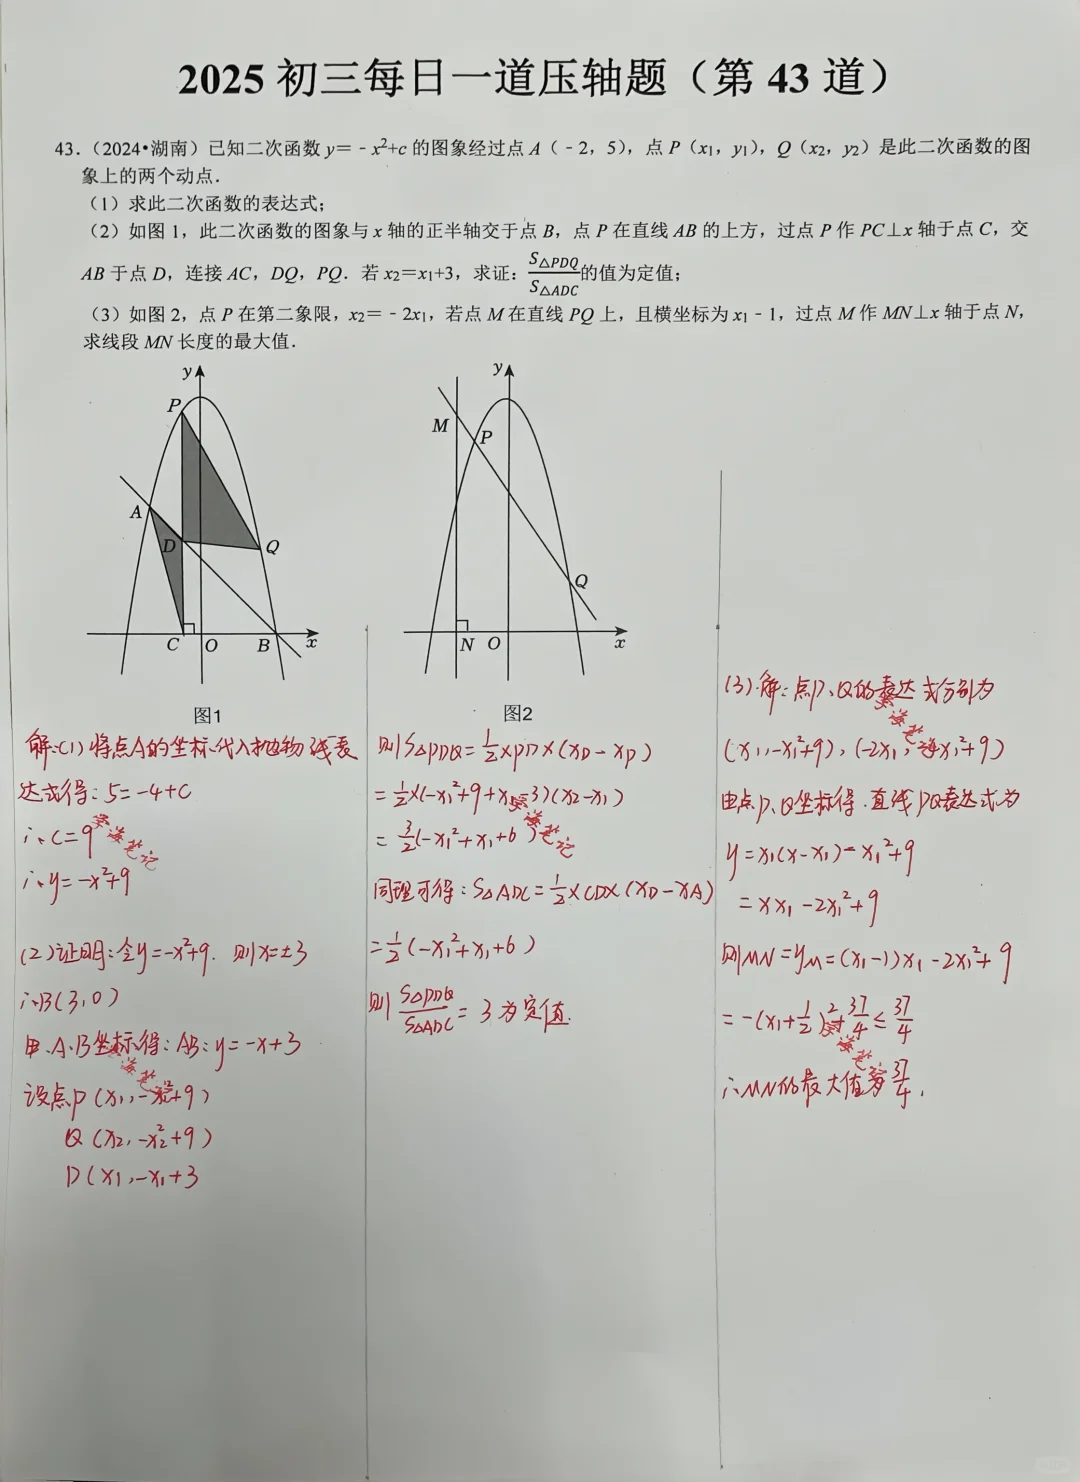 2025 初三每日一道压轴题（第 43 道）
43.（2024•湖南）已知二次函数 y＝﹣x²+c 的图象经过点 A（﹣2，5），点 P（x₁，y₁），Q（x₂，y₂）是此二次函数的图
象上的两个动点．
（1）求此二次函数的表达式；
（2）如图 1，此二次函数的图象与 x 轴的正半轴交于点 B，点 P 在直线 AB 的上方，过点 P 作 PC⊥x 轴于点 C，交
AB 于点 D，连接 AC，DQ，PQ．若 x₂＝x₁+3，求证：S△PDQ/S△ADC 的值为定值；
（3）如图 2，点 P 在第二象限，x₂＝﹣2x₁，若点 M 在直线 PQ 上，且横坐标为 x₁﹣1，过点 M 作 MN⊥x 轴于点 N，
求线段 MN 长度的最大值．
y
P
A
D
Q
C
O
B
x
图1
y
M
P
Q
N
O
x
图2
解:(1) 将点A的坐标代入抛物线表
达式得: 5=-4+c
∴c=9
∴y=-x²+9
(2)证明:令y=-x²+9. 则x=±3
∴B(3,0)
由.A.B坐标得: AB: y=-x+3
设点P(x₁,-x₁²+9)
Q(x₂,-x₂²+9)
D(x₁,-x₁+3
则S△PDQ=½×PD×(xQ-xP)
=½×(-x₁²+9+x₁-3)(x₂-x₁)
=3/2(-x₁²+x₁+6)
同理可得: S△ADC=½×CD×(xD-xA)
=½(-x₁²+x₁+6)
则 S△PDQ/S△ADC=3为定值.
(3).解:点P、Q的表达式分别为
(x₁,-x₁²+9), (-2x₁, -4x₁²+9)
由点P、Q坐标得.直线PQ表达式为
y=x₁(x-x₁)-x₁²+9
=xx₁-2x₁²+9
则MN=yM=(x₁-1)x₁-2x₁²+9
=-(x₁+½)²+37/4≤37/4
∴MN的最大值为37/4.
学海笔记
学海笔记
学海笔记
学海笔记
学海笔记